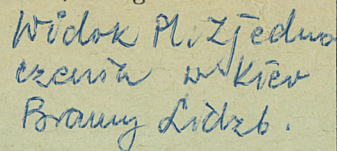 Widok Pl. Zjedno
czenia w Kier
Bramy Lidzb.